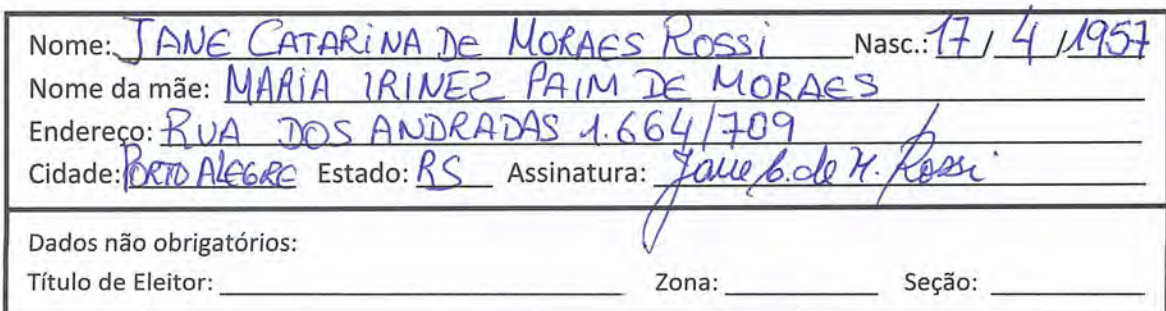 Nome: JANE CATARINA DE MORAES ROSSI Nasc.: 17 / 4 / 1957
Nome da mãe: MARIA IRINEZ PAIM DE MORAES
Endereço: RUA DOS ANDRADAS 1.664/709
Cidade: PORTO ALEGRE Estado: RS Assinatura: Jane C. de M. Rossi
Dados não obrigatórios:
Título de Eleitor: Zona: Seção: